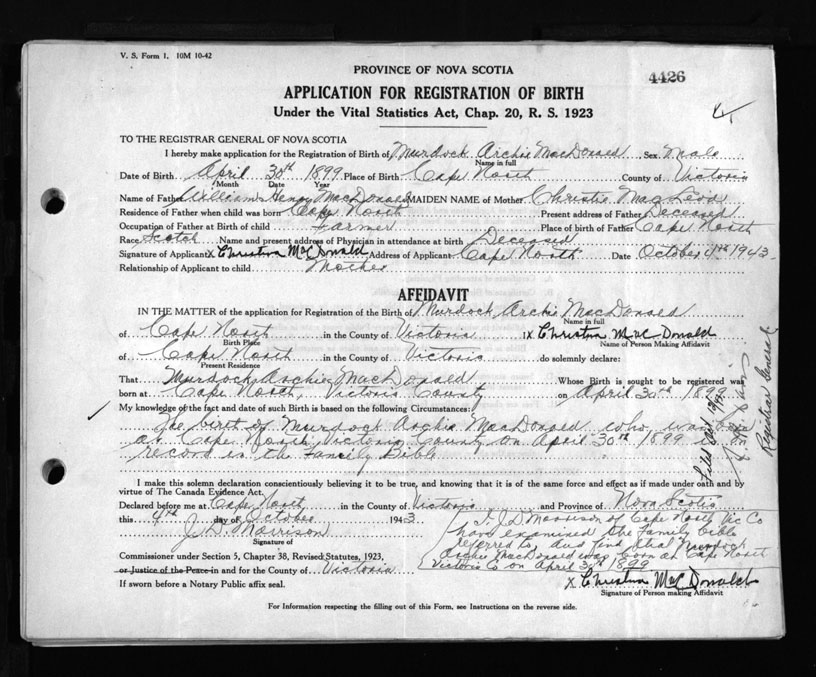 V. S. Form 1. 10M 10-42
PROVINCE OF NOVA SCOTIA
4426
APPLICATION FOR REGISTRATION OF BIRTH
Under the Vital Statistics Act, Chap. 20, R. S. 1923
TO THE REGISTRAR GENERAL OF NOVA SCOTIA
I hereby make application for the Registration of Birth of Murdock Archie MacDonald Sex Male
Name in full
Date of Birth April 30th 1899 Place of Birth Cape North County of Victoria
Month Date Year
Name of Father William Henry MacDonald MAIDEN NAME of Mother Christie MacLeod
Residence of Father when child was born Cape North Present address of Father Deceased
Occupation of Father at Birth of child Farmer Place of birth of Father Cape North
Race Scotch Name and present address of Physician in attendance at birth Deceased
Signature of Applicant X Christina McDonald Address of Applicant Cape North Date October 4th 1943.
Relationship of Applicant to child Mother
AFFIDAVIT
IN THE MATTER of the application for Registration of the Birth of Murdock Archie MacDonald
Name in full
of Cape North in the County of Victoria X Christina MacDonald
Birth Place Name of Person Making Affidavit
of Cape North in the County of Victoria do solemnly declare:
Present Residence
That Murdock Archie MacDonald Whose Birth is sought to be registered was
born at Cape North, Victoria County on April 30th 1899
My knowledge of the fact and date of such Birth is based on the following Circumstances:
The birth of Murdock Archie MacDonald who was born
at Cape North, Victoria County on April 30th 1899 is on
record in the Family Bible
Registrar General
I make this solemn declaration conscientiously believing it to be true, and knowing that it is of the same force and effect as if made under oath and by
virtue of The Canada Evidence Act.
Declared before me at Cape North in the County of Victoria and Province of Nova Scotia
this 4th day of October 1943
J. D. Morrison
Signature of
I, J. D. Morrison of Cape North Vic Co
have examined the Family bible
referred to and find that Murdock
Archie MacDonald was born at Cape North
Victoria Co on April 30th 1899
Commissioner under Section 5, Chapter 38, Revised Statutes, 1923,
or Justice of the Peace in and for the County of Victoria
X Christina MacDonald
If sworn before a Notary Public affix seal.
Signature of Person making Affidavit
For Information respecting the filling out of this Form, see Instructions on the reverse side.